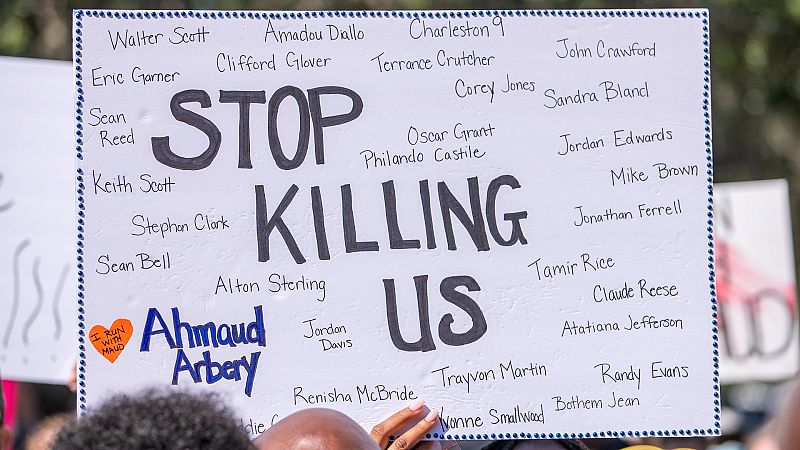 Walter Scott
Amadou Diallo
Charleston 9
Eric Garner
Clifford Glover
Terrance Crutcher
John Crawford
Corey Jones
Sandra Bland
Sean
Reed
STOP
Oscar Grant
Philando Castile
Jordan Edwards
Mike Brown
Keith Scott
KILLING
Jonathan Ferrell
Stephon Clark
Sean Bell
Alton Sterling
US
Tamir Rice
Claude Reese
I RUN
WITH
MAUD
Ahmaud
Arbery
Jordan
Davis
Atatiana Jefferson
Trayvon Martin
Randy Evans
Renisha McBride
Bothem Jean
Yvonne Smallwood